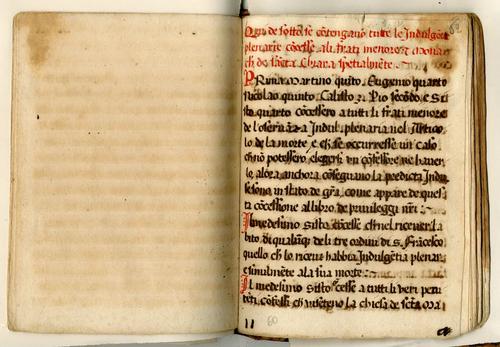 62
Qui de sotto se cōtengano tutte le Indulgētie
plenarie cōcesse ali frati menori & mona
ch de sancta Chiara spetialmēte.
PRima Martino quīto. Eugenio quarto
Nicolao quinto, Calisto 3, Pio secōdo, e Si
sto quarto cōcessero a tutti li frati menore
de l'oseruāza Indul. plenaria nel Artico
lo de la morte, e ch se occurresse un caso
ch nō potessero eleggersi un cōfessore ne haver
lo, alora anchora cōseguano la predicta Indul
se sono in stato de grā, come appare de ques
ta cōcessione al libro de privileggi nrī.
Il medesimo Sisto cōcesse ch nel ricever la
bito di qualūq de li tre ordini di s. Frācesco
quello ch lo riceve habbia Indulgētia plenar
e similmēte ala sua morte.
Il medesimo Sisto cōcesse a tutti li veri peni
tēti, cōfessi, ch visitēno la chiesa de scta Ma
11 60